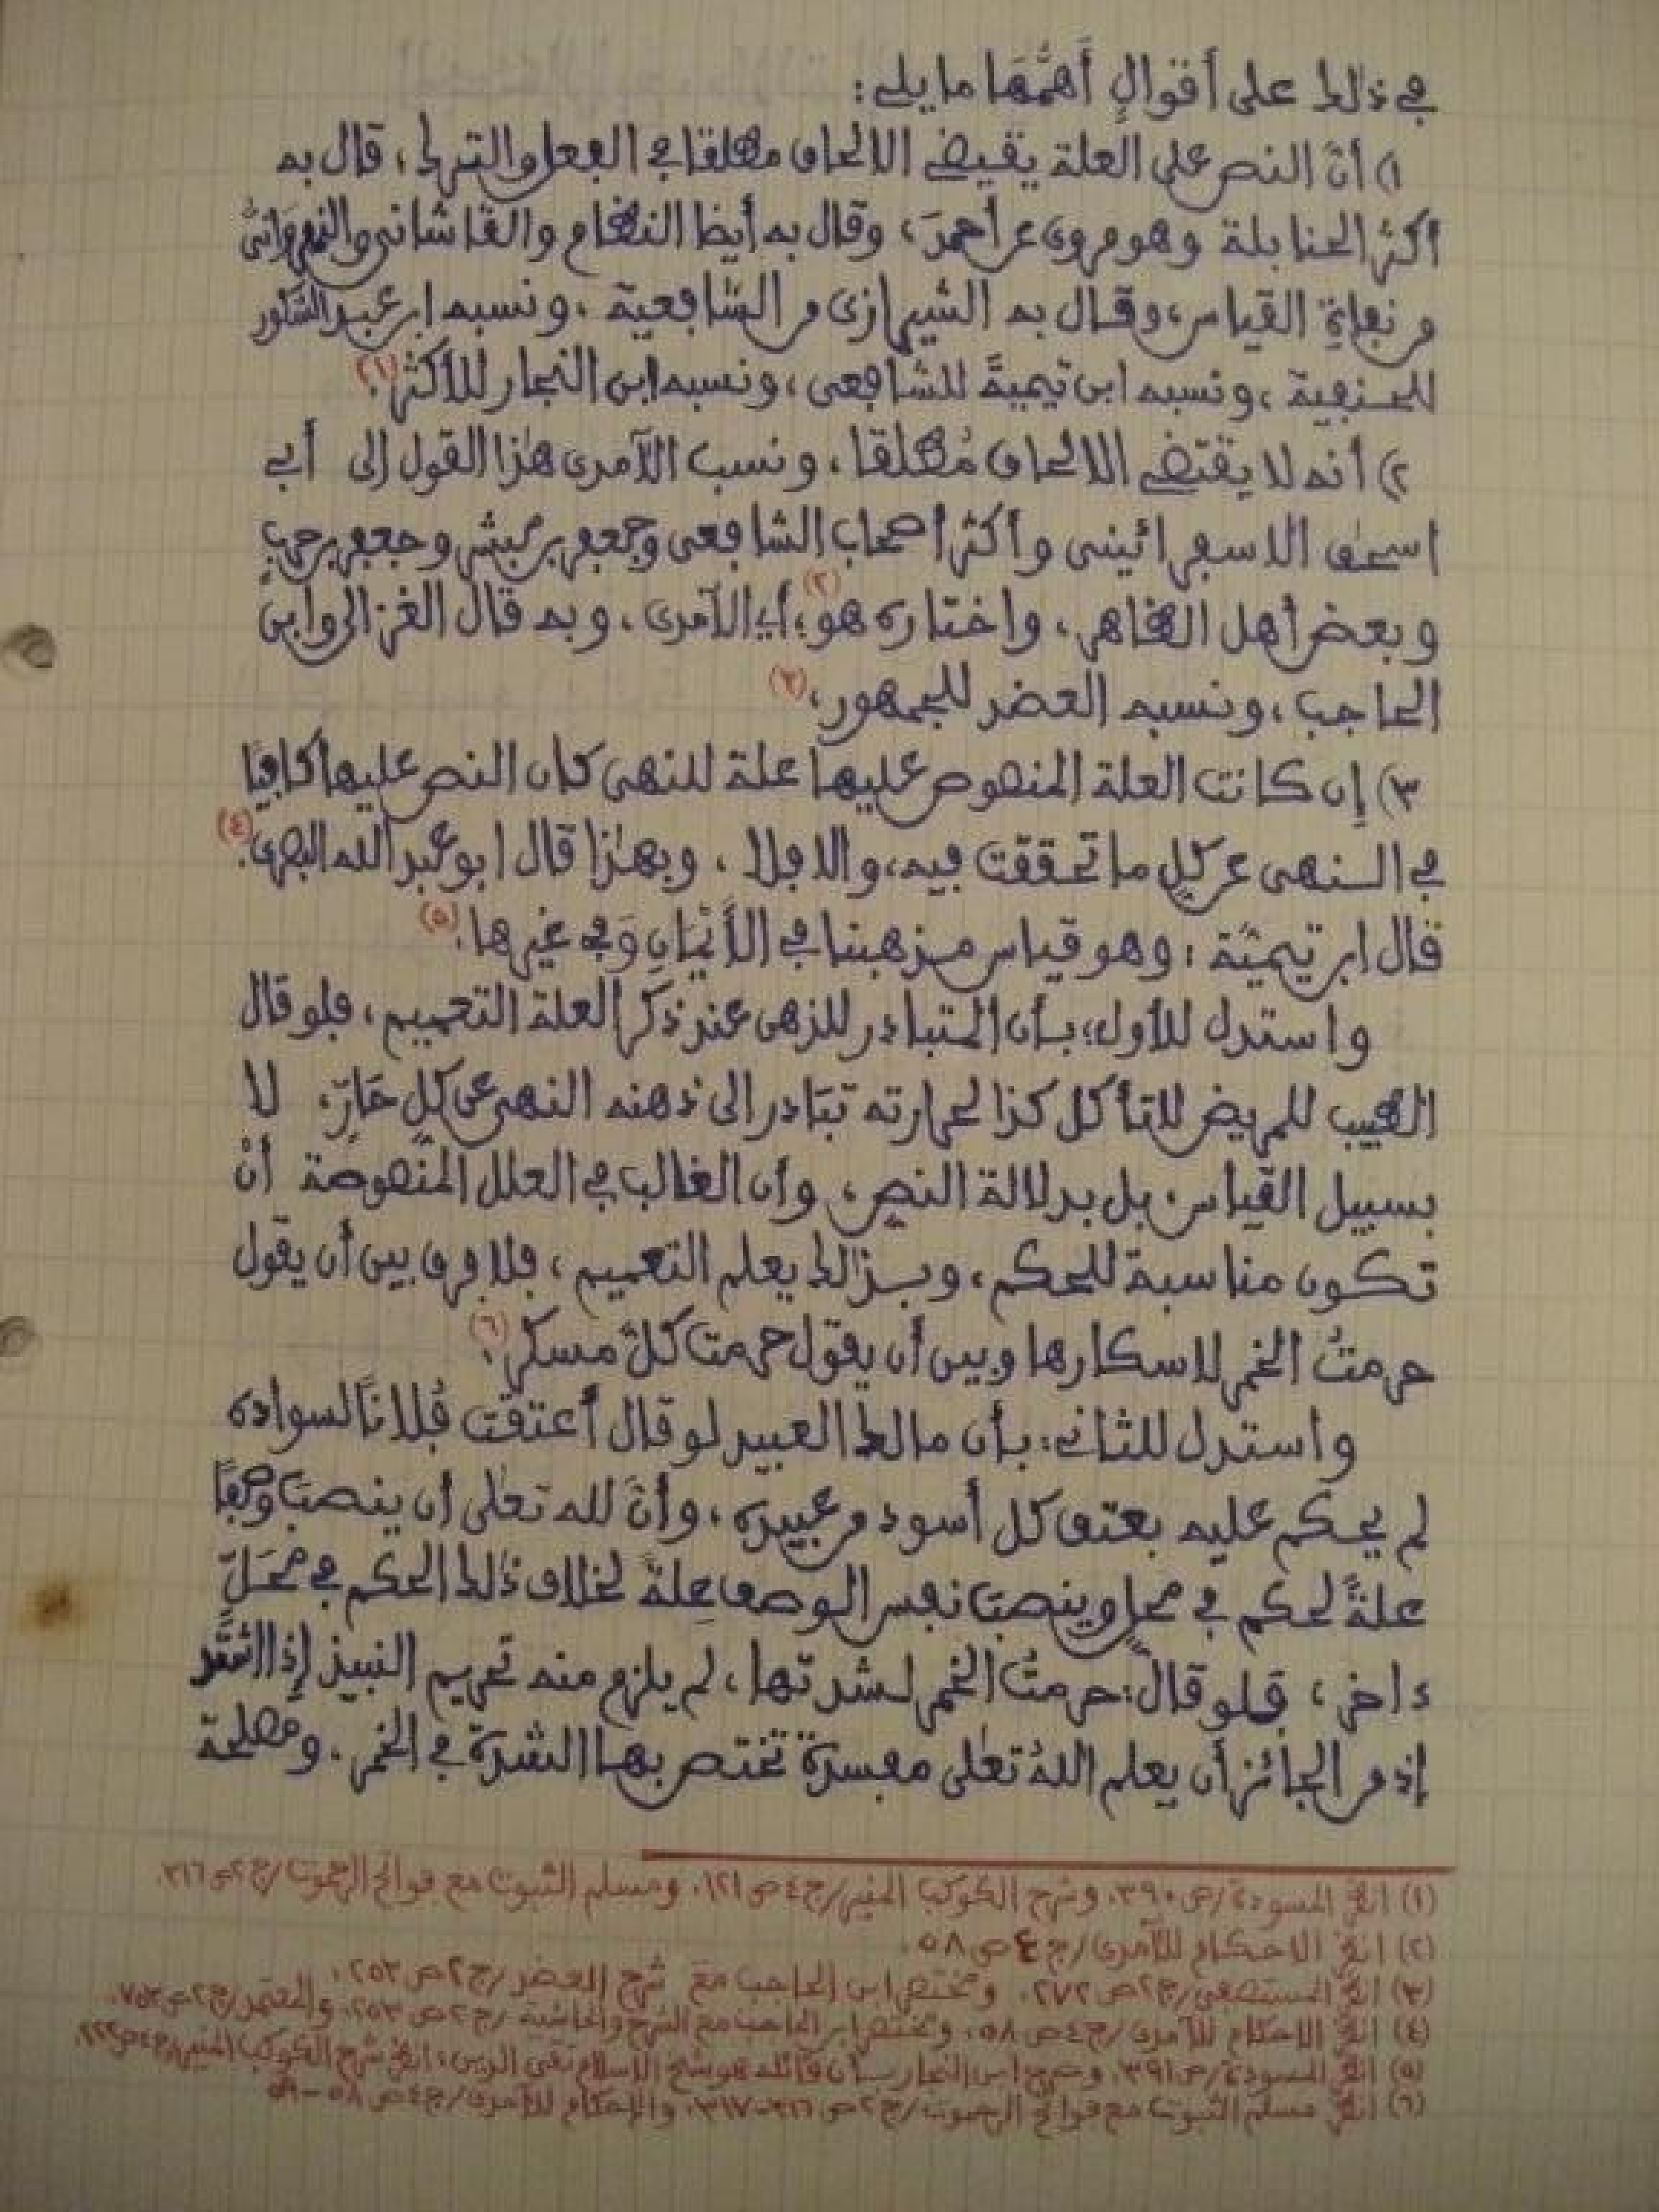 في ذلك على أقوالٍ أهمُّهَا ما يلي:
١) أنّ النص على العلة يقيضي الالحاق مطلقا في الفعل والترك، قال به
أكثر الحنابلة وهو مروى عن أحمدَ، وقال به أيظا النظام والقاشانى والنهروانىُّ
من نفاةِ القياس، وقال به الشيرازى من الشافعية، ونسبه ابن عبد الشكور
للحنفية، ونسبه ابن تيميةَ للشافعى، ونسبه ابن النجار للأكثر. (١)
٢) أنه لا يقتضي الالحاق مُطلقا، ونسب الآمدى هٰذا القول إلى أبي
اسحٰق الاسفرائينى وأكثر اصحاب الشافعى وجعفر بن مبشر وجعفر بن حربٍ
وبعض أهل الظاهر، واختاره هو؛ أي الآمدى. (٢) وبه قال الغزالى وابن
الحاجب، ونسبه العضد للجمهور، (٣)
٣) إن كانت العلة المنصوص عليها علة للنهى كان النص عليها كافيًا
في النهى عن كلِ ما تحققت فيه، والا فلا، وبهٰذا قال ابو عبد الله البصرى. (٤)
قال ابن تيميّة: وهو قياس مذهبنا في الأَيْمَانِ وَفي غيرها. (٥)
واستدل للأول؛ بأن المتبادر للذهن عند ذكر العلة التعميم، فلو قال
الطبيب للمريض لا تأكل كذا لحرارته تبَادر الى ذهنه النهى عن كل حَارّ، لا
بسبيل القياس، بل بدلالة النصِ، وأن الغالب في العلل المنصوصة أنْ
تكون مناسبة للحكم، وبذٰلك يعلم التعميم، فلا فرق بين أن يقول
حرمتُ الخمر لاسكارها وبين أن يقول حرمت كلّ مسكر. (٦)
واستدل للثاني: بأن مالك العبيد لو قال أعتقت فُلاناً لسواده
لم يحكم عليه بعتق كل أسود من عبيده، وأنّ لله تعٰلى أن ينصبَ وصفًا
علةً لحكم في محلٍ وينصبَ نفس الوصف عِلةً لخلاف ذٰلك الحكم في محَلّ
ءاخر، فلو قال: حرمتُ الخمر لشدتها، لم يلزم منه تحريم النبيذ إذا اشتدّ
إذ من الجائز أن يعلم اللهُ تعٰلى مفسدة تختص بها الشدة في الخمر. ومصلحة
(١) انظر المسودة/ص ٣٩٠، وشرح الكوكب المنير/ج٤ ص ٢٢١، ومسلم الثبوت مع فواتح الرحموت/ج٢ ص ٣١٦.
(٢) انظر الاحكام للآمدى/ج ٤ ص ٥٨.
(٣) انظر المستصفى/ج٢ ص ٢٧٢، ومختصر ابن الحاجب مع شرح العضد/ج٢ ص ٢٥٣.
(٤) انظر الاحكام للآمدى/ج٤ ص ٥٨، ومختصر ابن الحاجب مع الشرح والحاشية/ج٢ ص ٢٥٣، والمعتمد/ج٢ ص ٧٥٣.
(٥) انظر المسودة/ص ٣٩١، وصرح ابن النجار بأن قائله هو شيخ الاسلام تقى الدين؛ انظر شرح الكوكب المنير/ج٤ ص ٢٢٢.
(٦) انظر مسلم الثبوت مع فواتح الرحموت/ج٢ ص ٣١٦-٣١٧، والإحكام للآمدى/ج٤ ص ٥٨-٥٩